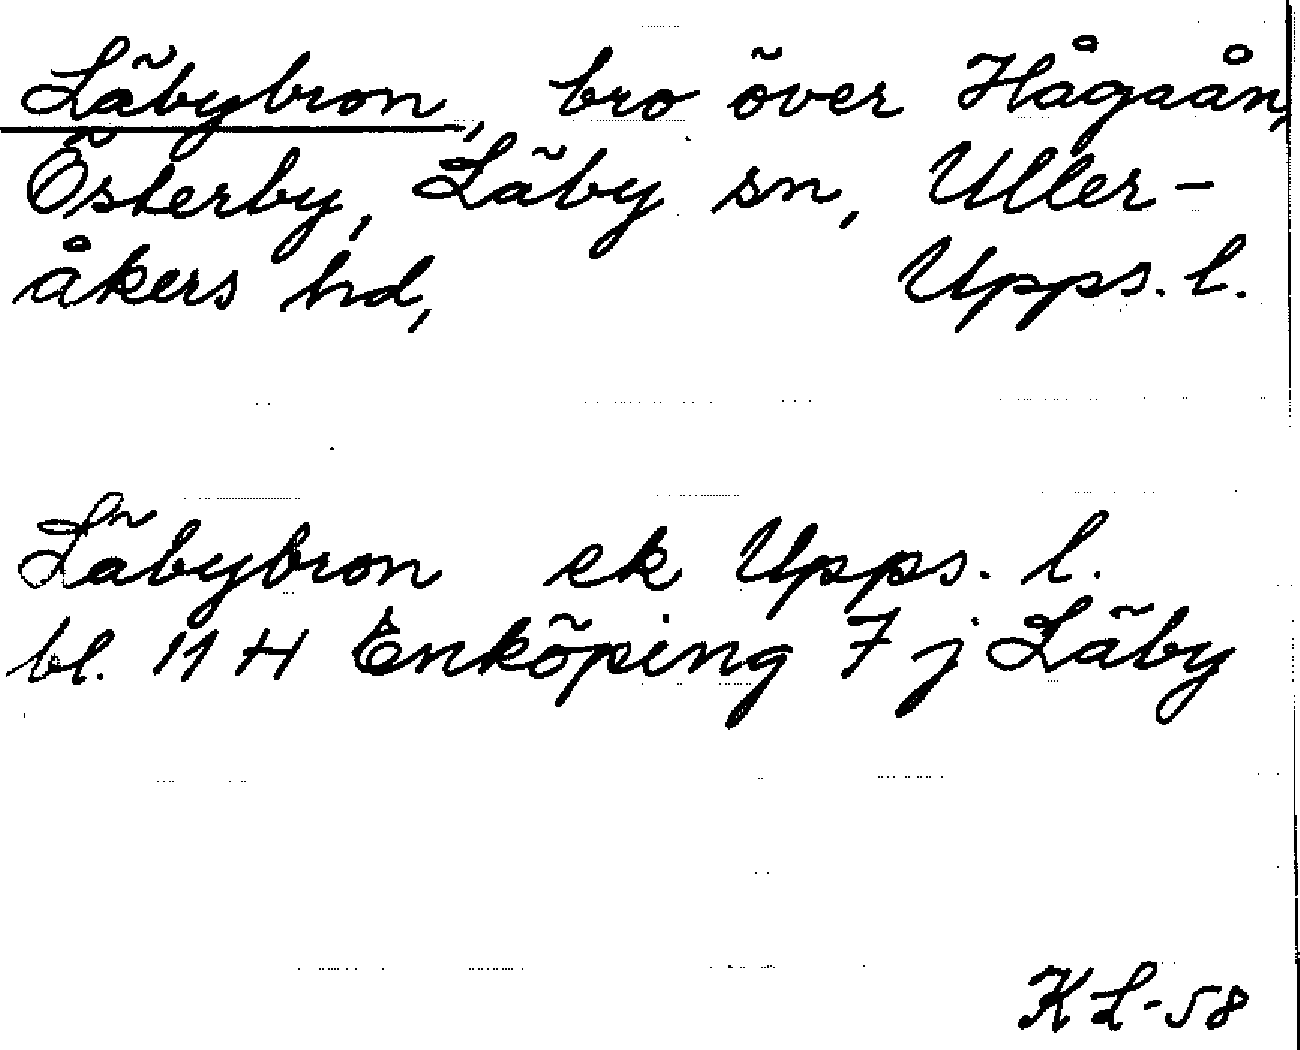 Läbybron, bro över Hågaån,
Österby, Läby sn, Uller-
åkers hd, Upps. l.
Läbybron ek Upps. l.
bl. 11 H Enköping 7 j Läby
KL-58